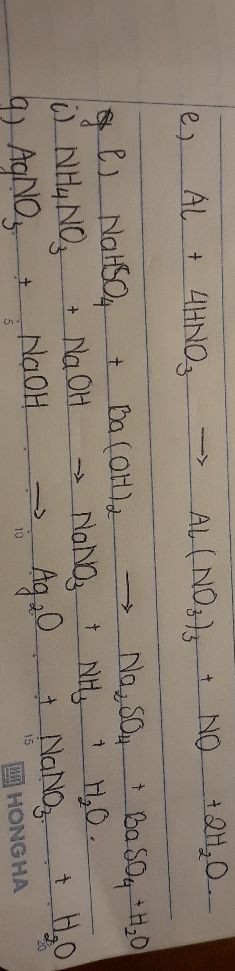 e) Al + 4HNO₃ → Al(NO₃)₃ + NO + 2H₂O.
l) NaHSO₄ + Ba(OH)₂ → Na₂SO₄ + BaSO₄ + H₂O
i) NH₄NO₃ + NaOH → NaNO₃ + NH₃ + H₂O.
g) AgNO₃ + NaOH → Ag₂O + NaNO₃ + H₂O
5 10 15 20
HONG HA